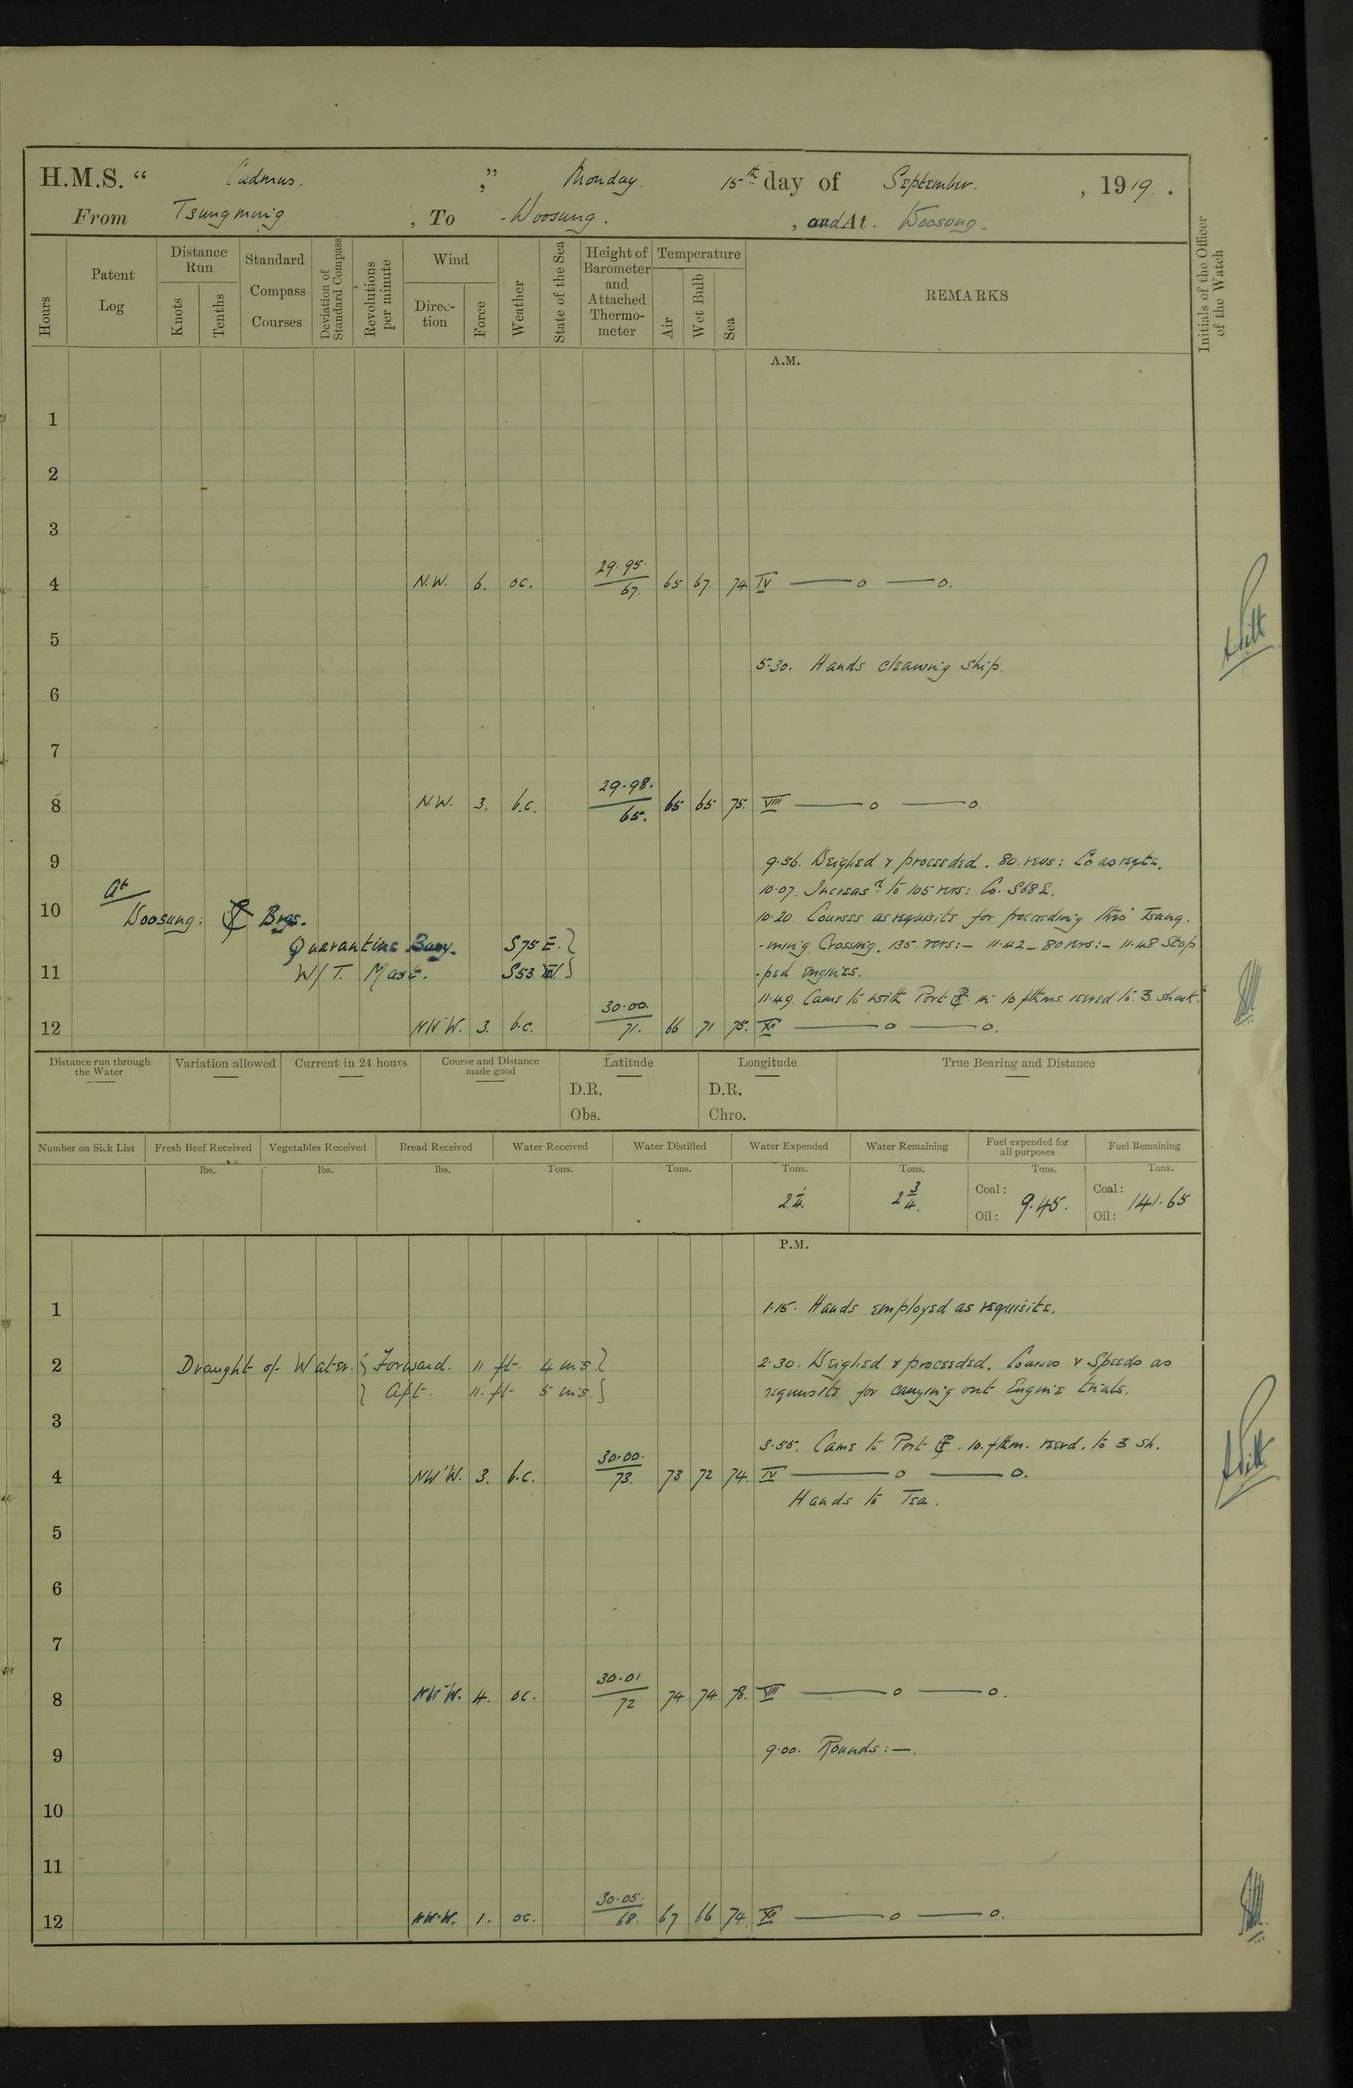 H.M.S. “ Cadmus. ,” Monday 15th day of September. , 1919.
From Tsungming , To Woosung. , and At. Woosung.
Hours
Patent Log
Distance Run
Knots
Tenths
Standard Compass Courses
Deviation of Standard Compass
Revolutions per minute
Wind
Direction
Force
Weather
State of the Sea
Height of Barometer and Attached Thermometer
Temperature
Air
Wet Bulb
Sea
REMARKS
Initials of the Officer of the Watch
A.M.
1
2
3
4 N.W. 6. oc. 29.95. 67. 65 67. 74 IV —— o —— o.
5
5.30. Hands cleaning ship.
6
7
8 N.W. 3. b.c. 29.98. 65. 65 65 75. VIII —— o —— o.
9
9.56. Weighed & proceeded. 80 revs: Co as reqte.
10.07. Increasd to 105 revs: Co. S68E.
At
10 Woosung: Brgs. 10.20. Courses as requisite for proceeding thro' Tsung-
Quarantine Buoy. S75E. -ming Crossing. 135 revs:- 11.42 - 80 revs:- 11.48 Stop
11 W/T. Mast. S53W. -ped engines.
11.49. Came to with Port in 10 fthms veered to 3 shack.
12 NW'W. 3. b.c. 30.00. 71. 66 71 75. XII —— o —— o.
Distance run through the Water
Variation allowed
Current in 24 hours
Course and Distance made good
Latitude
D.R.
Obs.
Longitude
D.R.
Chro.
True Bearing and Distance
Number on Sick List
Fresh Beef Received
lbs.
Vegetables Received
lbs.
Bread Received
lbs.
Water Received
Tons.
Water Distilled
Tons.
Water Expended
Tons.
2 1/4.
Water Remaining
Tons.
2 3/4.
Fuel expended for all purposes
Tons.
Coal: 9.45.
Oil:
Fuel Remaining
Tons.
Coal: 141.65
Oil:
P.M.
1 1.15. Hands employed as requisite.
2 Draught of Water. { Forward. 11 ft. 4 ins } 2.30. Weighed & proceeded. Courses & Speeds as
} Aft. 11. ft 5 ins. } requisite for carrying out Engine trials.
3
3.55. Came to Port . 10. fthm. veerd. to 3 sh.
4 NW'W. 3. b.c. 30.00. 73. 73 72 74. IV —— o —— o.
Hands to Tea.
5
6
7
8 NW'W. 4. oc. 30.01 72 74 74 78. VIII —— o —— o.
9 9.00. Rounds:—.
10
11
12 NW'W. 1. oc. 30.05. 68. 67 66 74 XII —— o —— o.